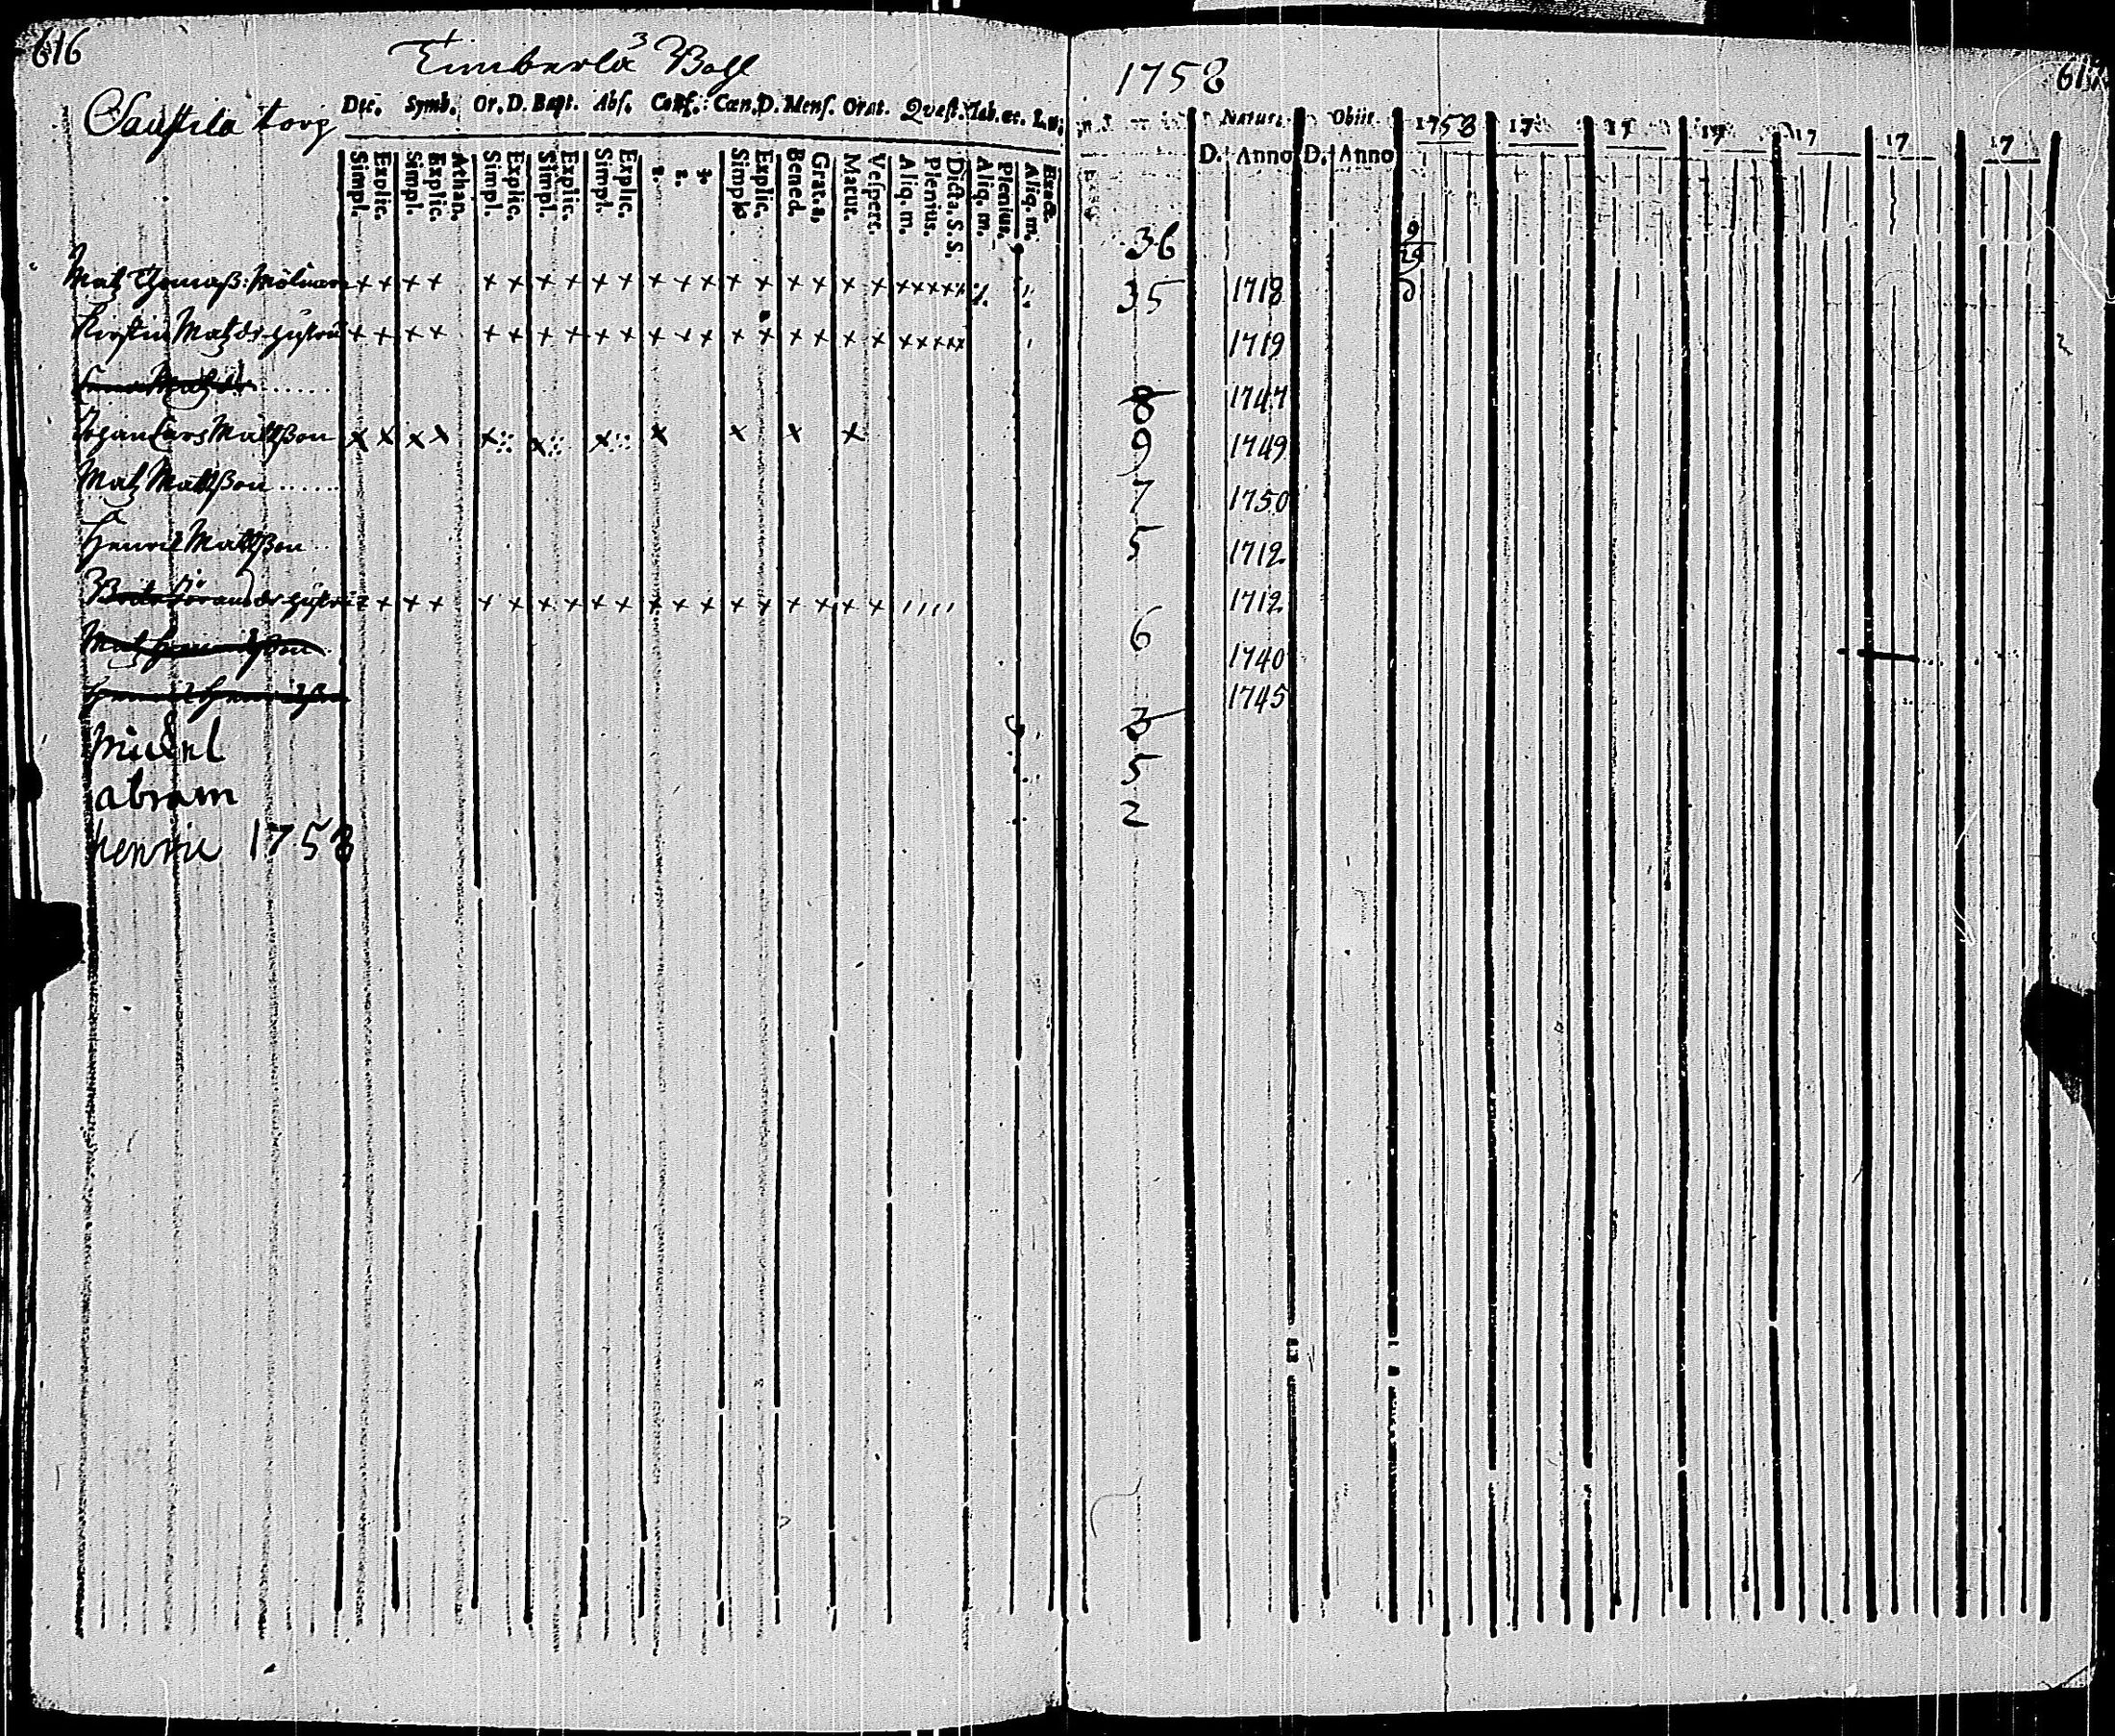 616
Timberla 3 Boll
Saustila torp
Dec. Symb. Or. D. Bapt. Abs. Conf. Cœn. D. Mens. Orat. Quæst. Tab. œc.
Simpl. Explic. Simpl. Explic. Athan. Simpl. Explic. Simpl. Explic. Simpl. Explic. 1. 2. 3. Simpl. Explic. Bened. Grat. a. Matut. Vespert. Aliq. m. Plenius. Dicta. S. S. Aliq. m. Plenius. Aliq. m. Exacte.
Matz Thomaß: + + + + + + + + + + + + + + + + + + + + + + + +
Kirstin Matzdr hustru + + + + + + + + + + + + + + + + + + + + + + + +
Matzdr
Johan Lars Mattßon x x x x x x x x x x x
Matz Mattßon
Henric Mattßon
hustru + + + + + + + + + + + + + + + + + + +
Matz Henricßon
Henric Henricß
Michel
abram
henric 1758
1758
617
Natus. Obiit 1758 17 17 17 17 17 17
D. Anno D. Anno
36
35 1718
1719
8 1747
9 1749
7 1750
5 1712
1712
6
1740
1745
3
5
2